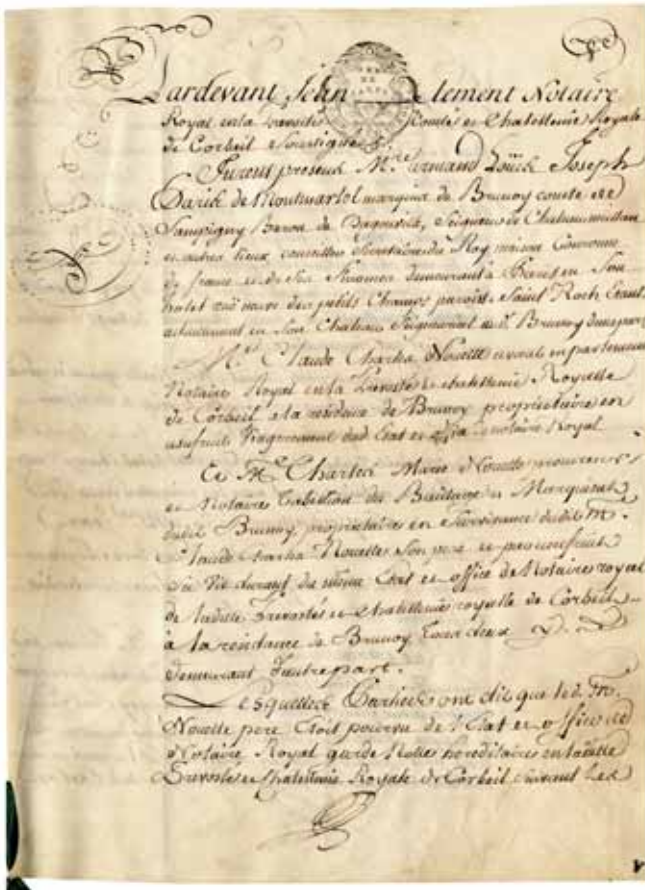 Pardevant Jean Clement Notaire
Royal en la Prevosté Comté et Chatellenie Royale
de Corbeil soussigné &.
Furent presens M.re Armand Louis Joseph
Paris de Montmartel marquis de Brunoy comte de
Sampigny Baron de Dagouville, Seigneur de Chateaumeillan
et autres lieux conseiller Secretaire du Roy maison Couronne
de france et de ses finances demeurant à Paris en Son
hotel rue neuve des petits Champs paroisse Saint Roch Etant
actuellement en Son Chateau Seigneurial de Brunoy d'une part
M.e Claude Charles Nouette avocat en parlement
Notaire Royal en la Prevosté et chatellenie Royalle
de Corbeil a la residence de Brunoy proprietaire en
usufruit Viagerement dud Etat et de notaire Royal
Et M.e Charles Marie Nouette procureur
et Notaire Tabellion du Bailliage et Marquisat
dudit Brunoy proprietaire en Survivance dudit M.
Claude Charles Nouette Son pere et
Sa Vie durant du même Etat et office de Notaire royal
de ladite Prevosté et chatellenie royalle de Corbeil
à la residence de Brunoy tous deux
demeurant d'autre part.
Lesquelles Parties ont dit que led. M.
Nouette pere Etoit pourvu de l'Etat et office de
Notaire Royal garde Nottes hereditaires en laditte
Prevosté et Chatellenie Royale de Corbeil suivant Les